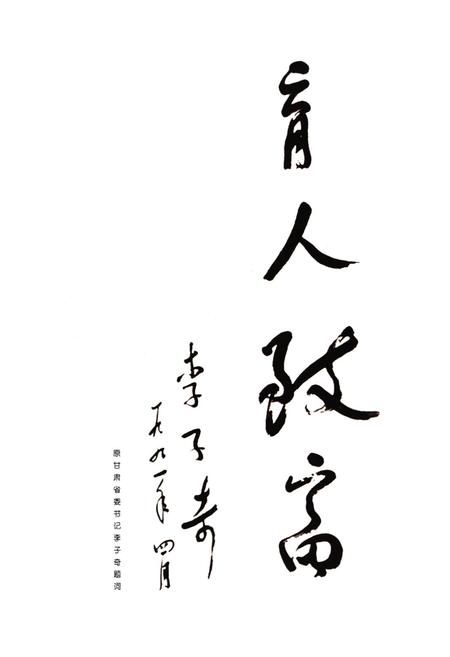 育人致富
李子奇
一九九一年四月
原甘肃省委书记李子奇题词